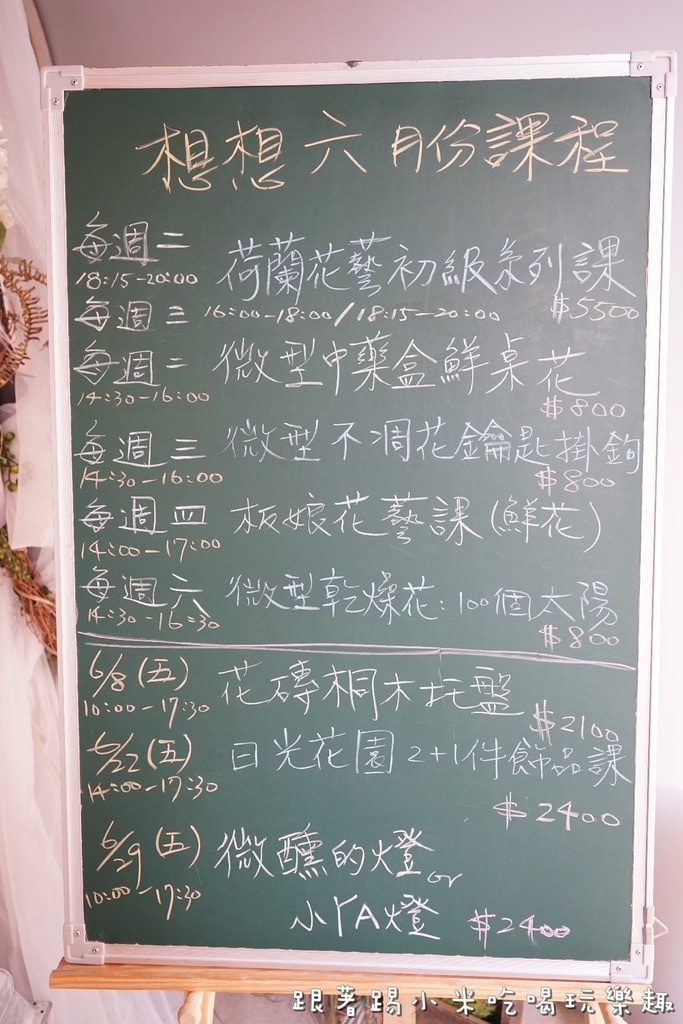 想想六月份課程
每週二 荷蘭花藝初級系列課
18:15-20:00
每週三 16:00-18:00/18:15-20:00 $5500
每週二 微型中藥盒鮮桌花
14:30-16:00 $800
每週三 微型不凋花鑰匙掛鉤
14:30-16:00 $800
每週四 板娘花藝課(鮮花)
14:00-17:00
每週六 微型乾燥花:100個太陽
14:30-16:30 $800
6/8(五) 花磚桐木托盤
10:00-17:30 $2100
6/22(五) 日光花園2+1件飾品課
14:00-17:30 $2400
6/29(五) 微醺的燈or
10:00-17:30 小YA燈 $2400
跟著踢小米吃喝玩樂趣